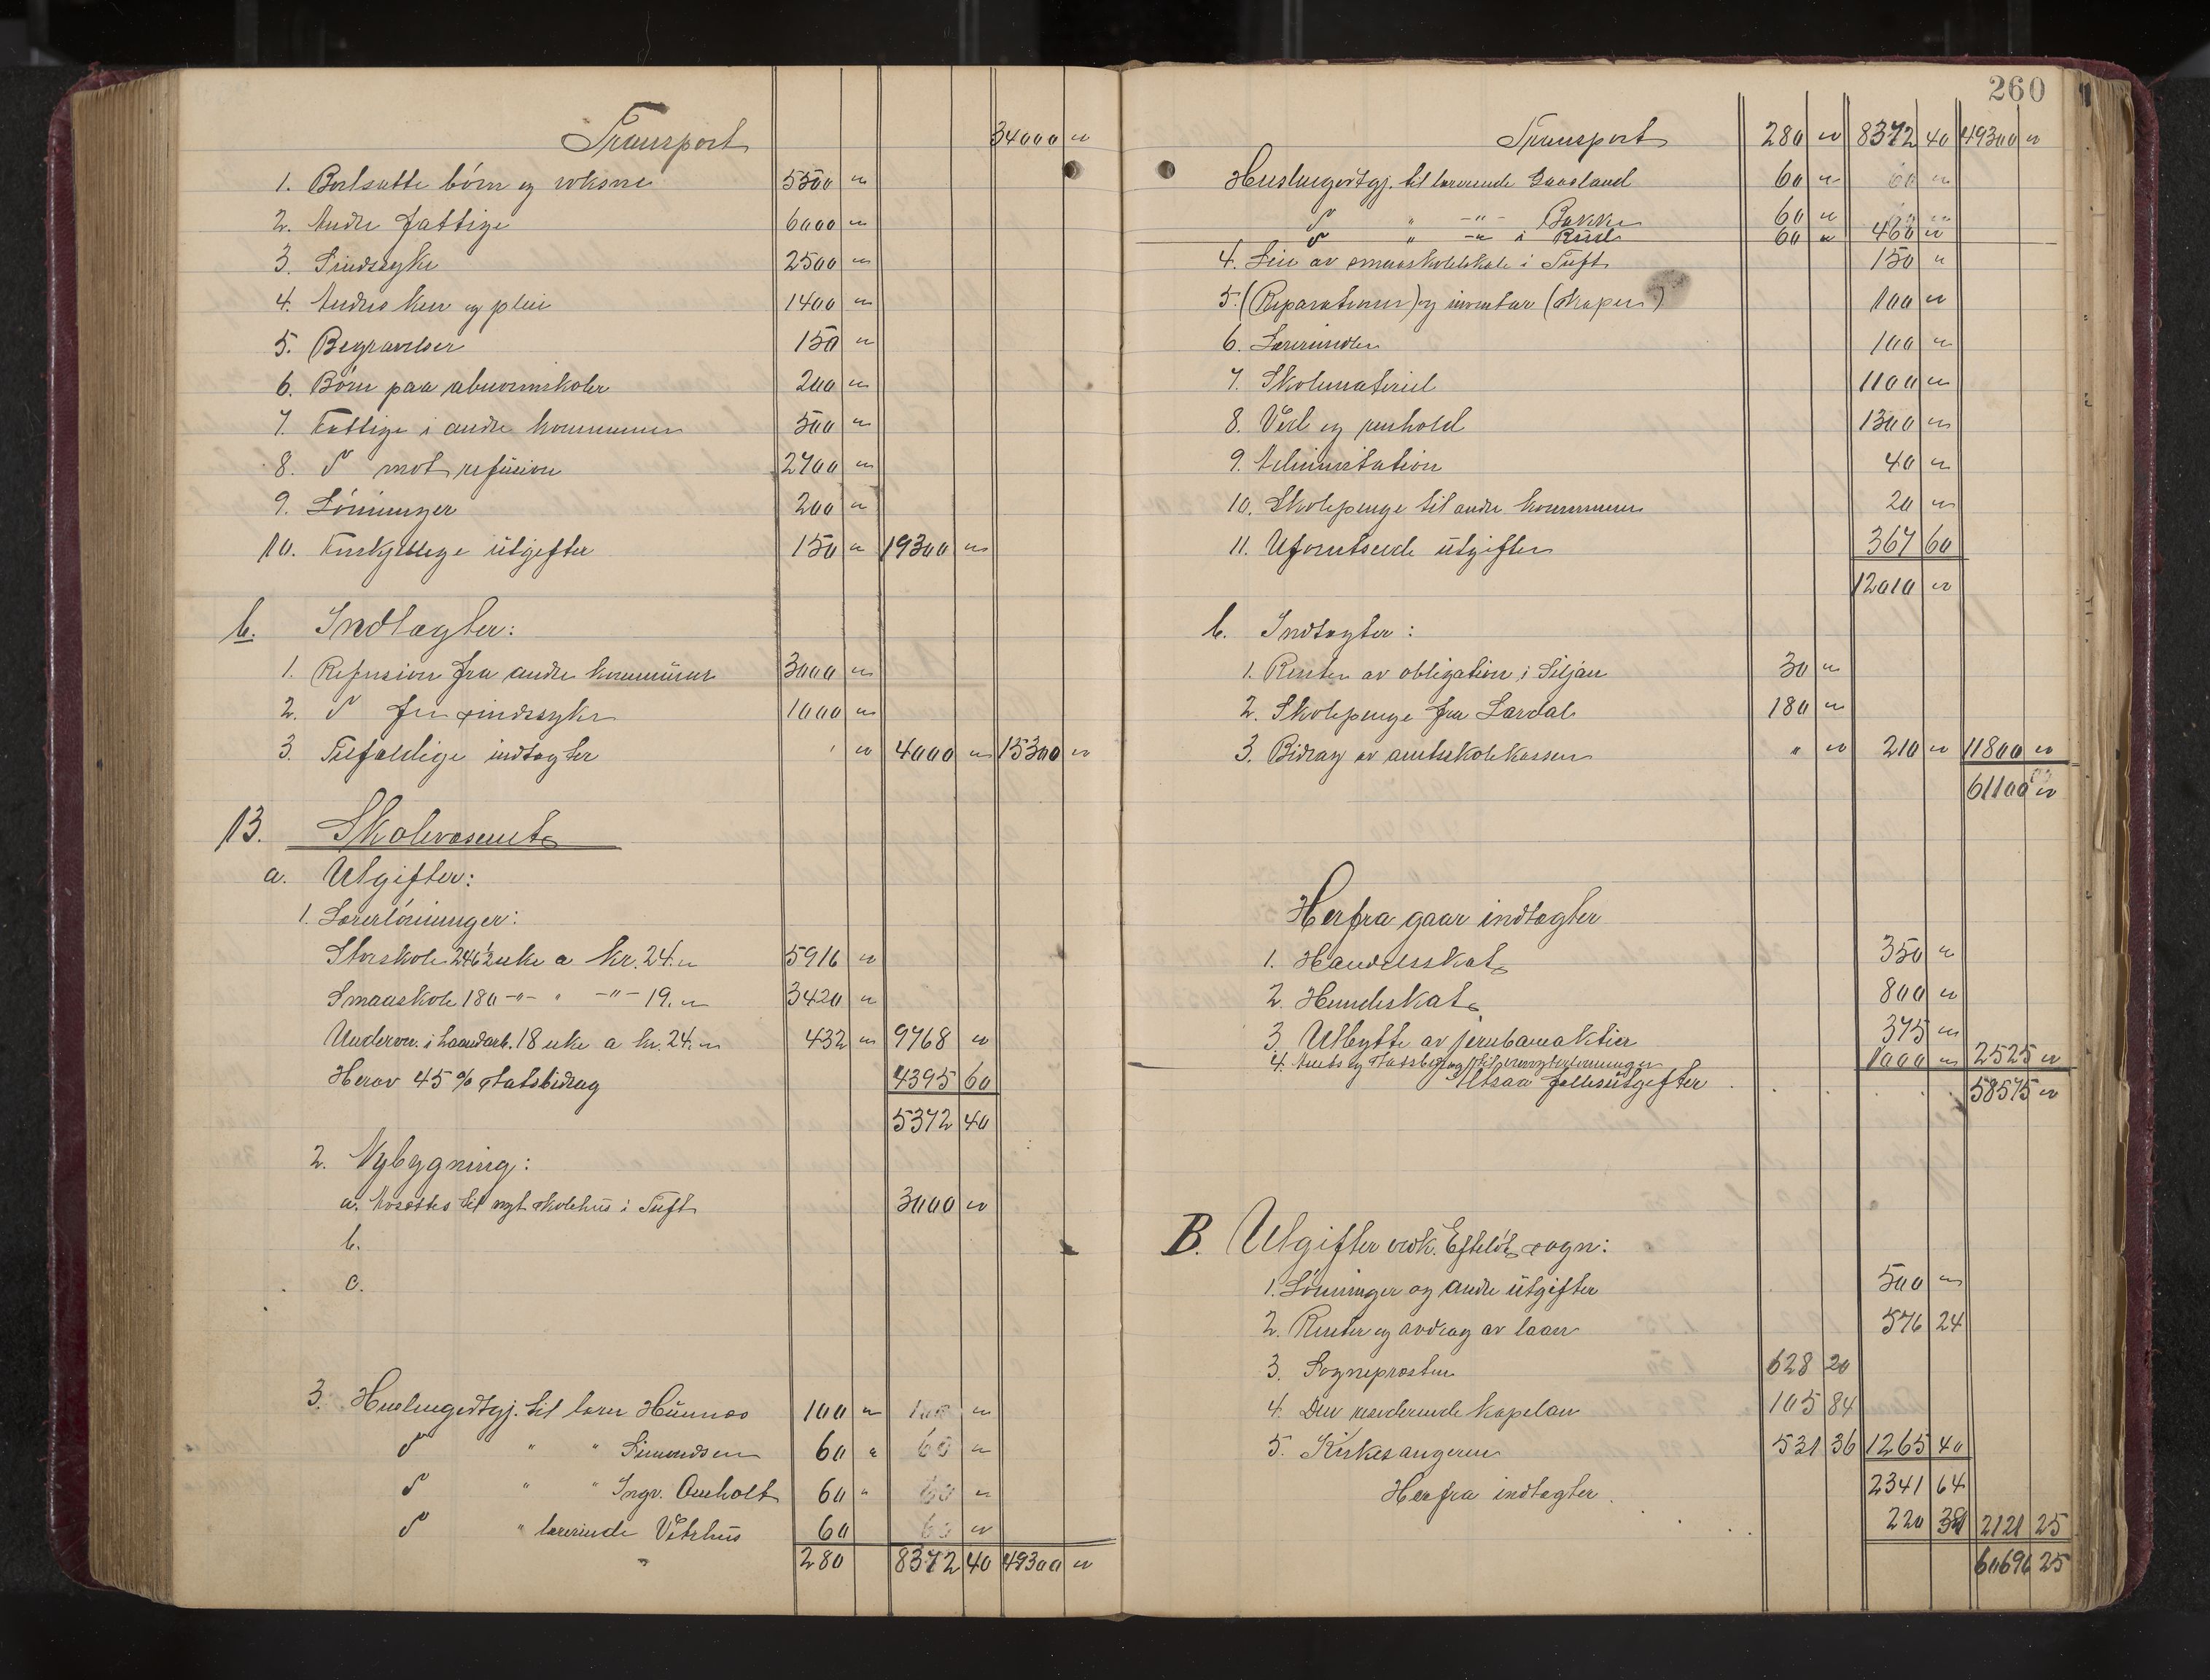 Transport 34000 "
1. Bortsatte börn og voksne 5500 "
2. Andre fattige 6000 "
3. Sindssyke 2500 "
4. Andres kur og pleie 1400 "
5. Begravelser 150 "
6. Börn paa abnormskoler 200 "
7. Fattige i andre kommuner 500 "
8. d° mot refusion 2700 "
9. Lönninger 200 "
10. Forskjellige utgifter 150 " 19300 "
b. Indtægter:
1. Refusion fra andre kommuner 3000 "
2. d° for sindssyke 1000 "
3. Tilfældige indtægter " " 4000 " 15300 "
13. Skolevæsenet
a. Utgifter:
1. Lærerlönninger:
Storskole 246½ uke a kr. 24. " 5916 "
Smaaskole 180 -"- " -"- 19. " 3420 "
Underv. i haandarb. 18 uke a kr. 24. " 432 " 9768 "
Herav 45 % statsbidrag 4395 60
5372 40
2. Nybygning:
a. Avsættes til nyt skolehus i Tuft 3000 "
b.
c.
3. Huslergodtgj. til lærer Hünnæs 100 " 100 "
d° " " Simonsen 60 " 60 "
d° " " Ingv. Omholt 60 " 60 "
d° " lærerinde Vetrhus 60 60 "
280 8372 40 49300 "
260
Transport 280 " 8372 40 49300 "
Huslergodtgj. til lærerinde Gaasland 60 " 60 "
d° " -"- Bakke 60 "
d° " -"- i Rud 60 " 460 "
4. Leie av smaaskolelokale i Tuft 150 "
5. (Reparationer) og inventar (skaper) 100 "
6. Lærerinder 100 "
7. Skolemateriel 1100 "
8. Ved og renhold 1300 "
9. Administration 40 "
10. Skolepenge til andre kommuner 20 "
11. Uforutseede utgifter 367 60
12010 "
b. Indtægter:
1. Renter av obligation i Siljan 30 "
2. Skolepenge fra Lardal 180 "
3. Bidrag av amtsskolekassen " " 210 " 11800 "
61100 "
Herfra gaar indtægter
1. Handelsskat 350 "
2. Hundeskat 800 "
3. Utbytte av jernbaneaktier 375 "
4. Amts og statsbidrag til 1000 " 2525 "
Altsaa fællesutgifter 58575 "
B. Utgifter vedk. Efteløt sogn:
1. Lönninger og andre utgifter 500 "
2. Renter og avdrag av laan 576 24
3. Sogneprosten 628 20
4. Den residerende kapelan 105 84
5. Kirkesangeren 531 36 1265 40
2341 64
Herfra indtægter 220 39 2121 25
60696 25